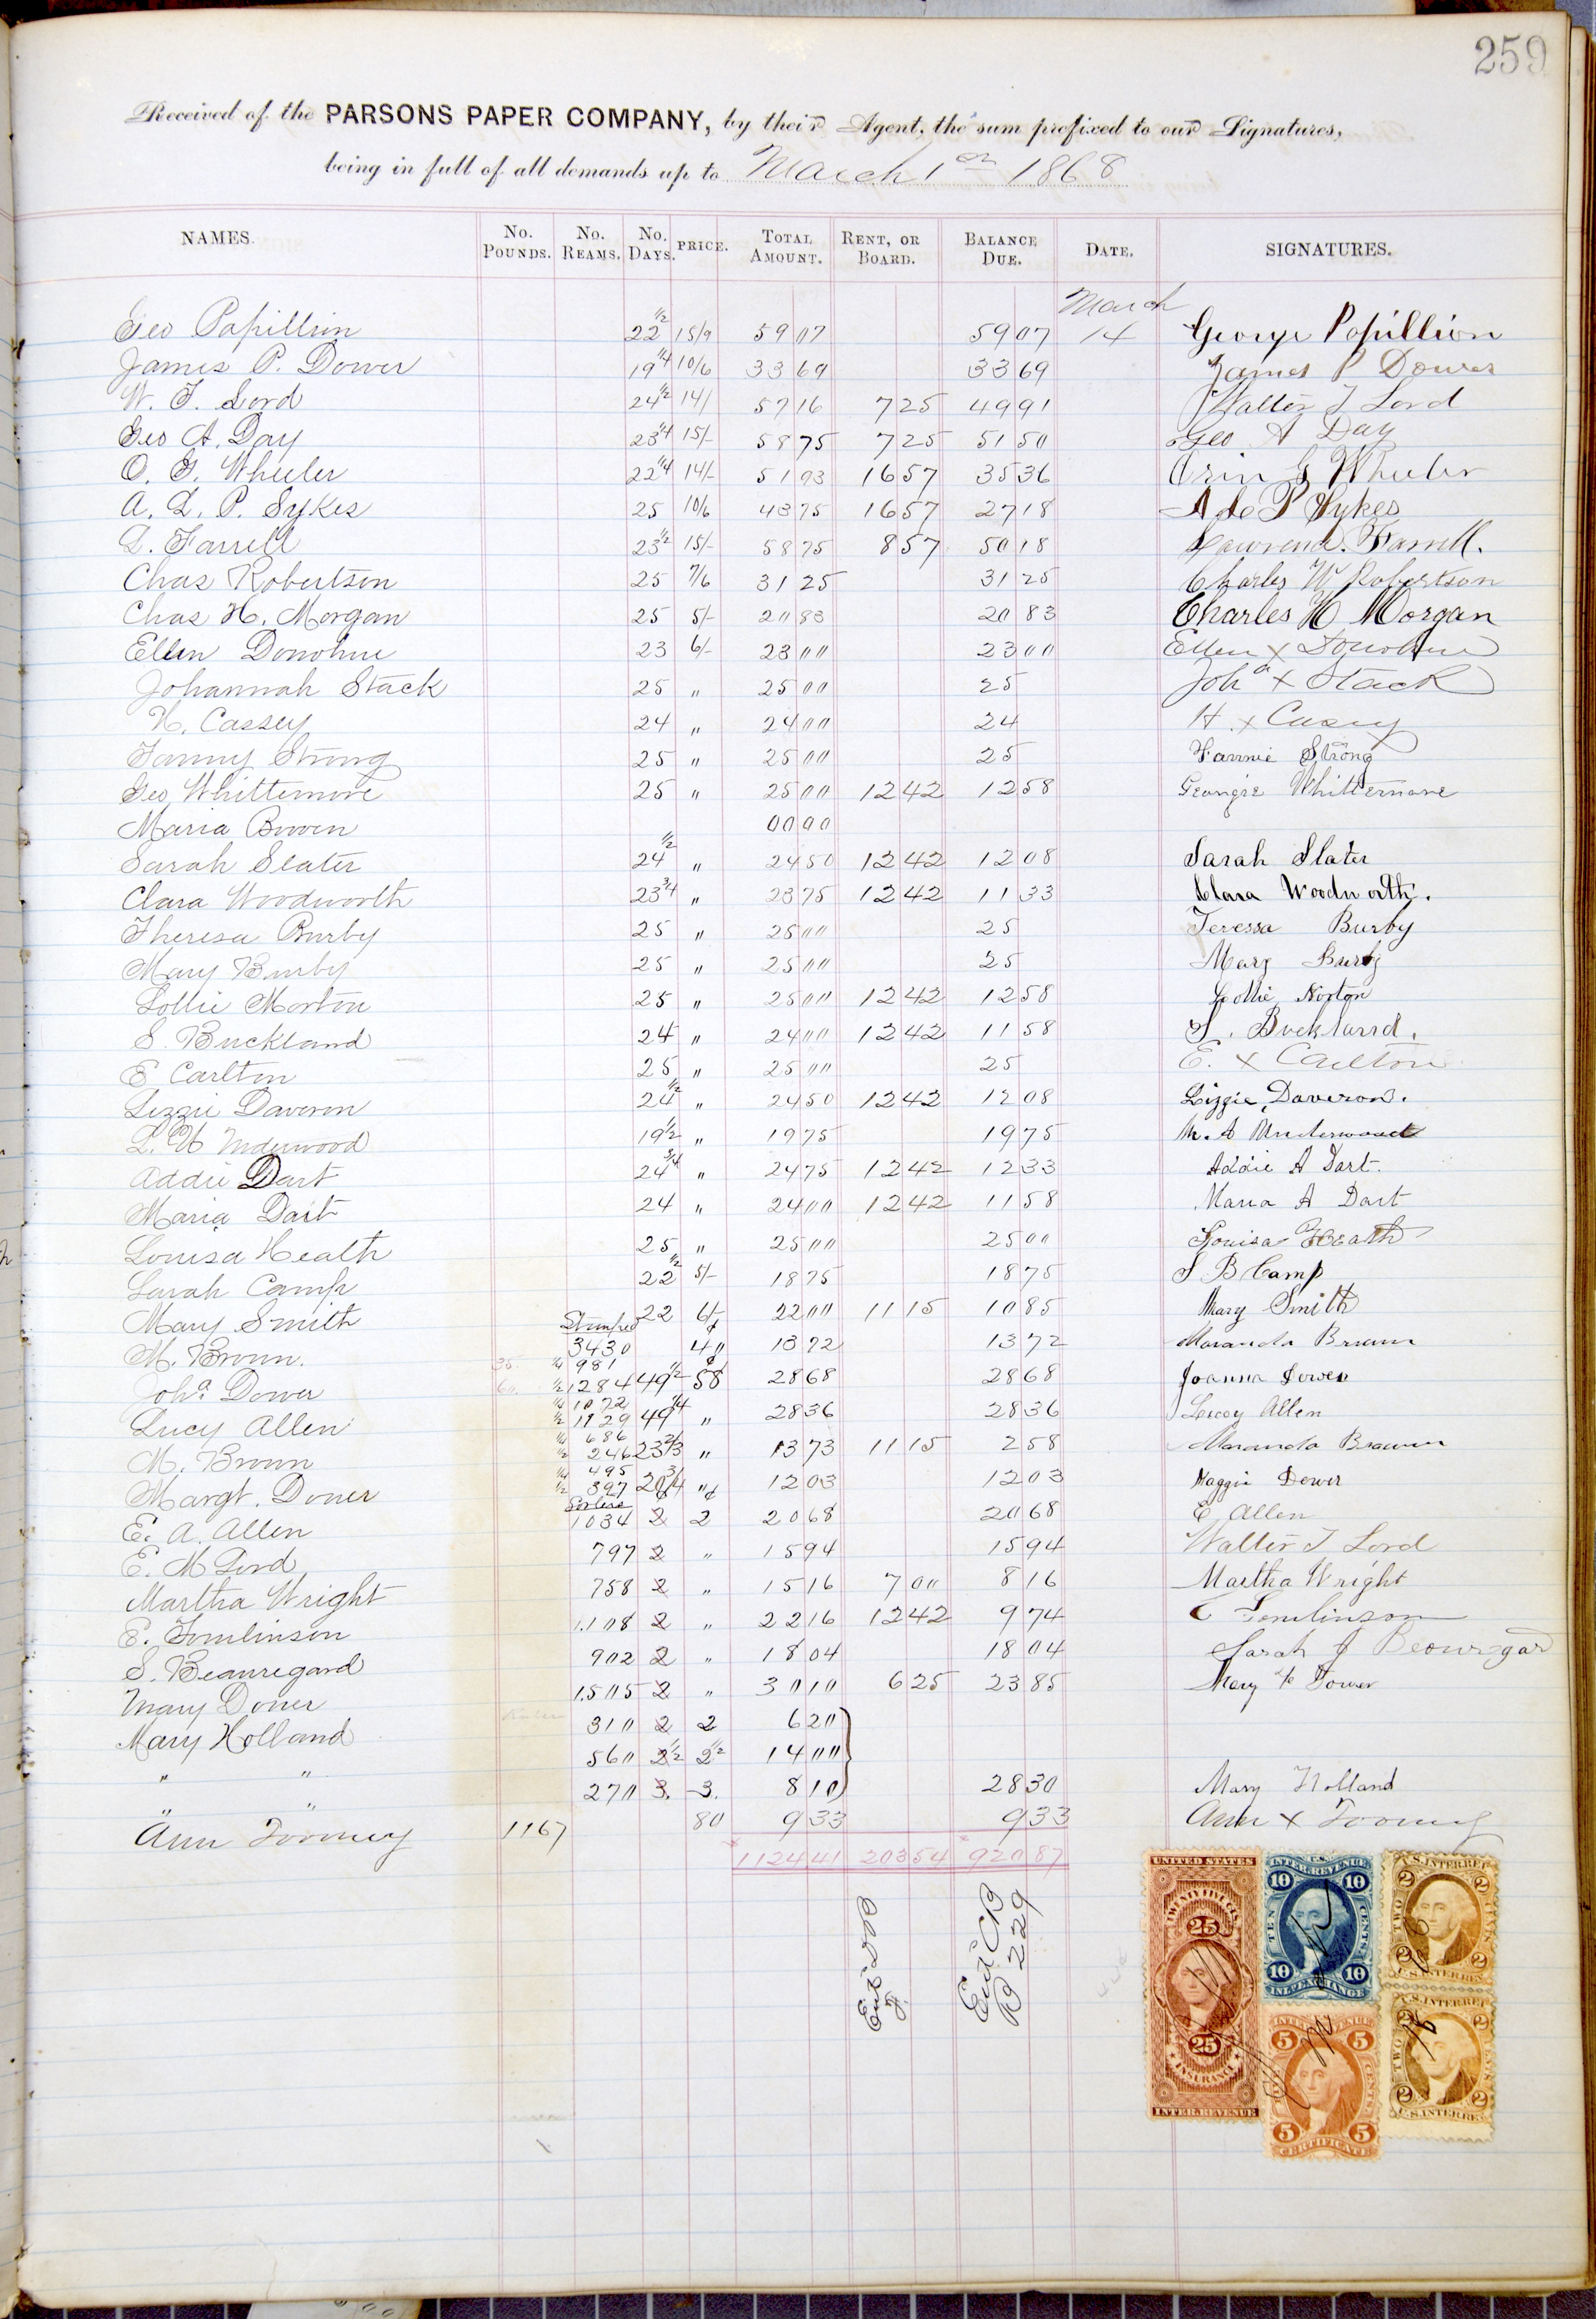 259
Received of the PARSONS PAPER COMPANY, by their Agent, the sum prefixed to our Signatures,
being in full of all demands up to March 1st 1868
NAMES. No. Pounds. No. Reams. No. Days. PRICE. Total Amount. Rent, or Board. Balance Due. Date. SIGNATURES.
March
Geo Papillion 22 1/2 15/9 59 07 59 07 14 George Papillion
James P. Dower 19 1/4 10/6 33 69 33 69 James P Dower
W. T. Lord 24 1/2 14/ 57 16 7 25 49 91 Walter T Lord
Geo A. Day 23 1/4 15/- 58 75 7 25 51 50 Geo A Day
O. G. Wheeler 22 1/4 14/- 51 93 16 57 35 36 Orin G Wheeler
A. L. P. Sykes 25 10/6 43 75 16 57 27 18 A L P Sykes
L. Farrell 23 1/2 15/- 58 75 8 57 50 18 Lawrence Farrell.
Chas Robertson 25 7/6 31 25 31 25 Charles W Robertson
Chas H. Morgan 25 5/- 20 83 20 83 Charles H Morgan
Ellen Donohue 23 6/- 23 00 23 00 Ellen x Donohue
Johannah Stack 25 " 25 00 25 Joha x Stack
H. Cassey 24 " 24 00 24 H. x Casey
Fanny Strong 25 " 25 00 25 Fannie Strong
Geo Whittemore 25 " 25 00 12 42 12 58 Georgie Whittemore
Maria Bowen 00 00
Sarah Slater 24 1/2 " 24 50 12 42 12 08 Sarah Slater
Clara Woodworth 23 3/4 " 23 75 12 42 11 33 Clara Woodworth.
Theresa Burby 25 " 25 00 25 Teressa Burby
Mary Burby 25 " 25 00 25 Mary Burby
Lollie Morton 25 " 25 00 12 42 12 58 Lollie Norton
S. Buckland 24 " 24 00 12 42 11 58 S. Buckland.
E Carlton 25 " 25 00 25 E. x Carlton
Lizzie Daveron 24 1/2 " 24 50 12 42 12 08 Lizzie Daveron.
L. H Underwood 19 1/2 " 19 75 19 75 M. A Underwood
Addie Dart 24 3/4 " 24 75 12 42 12 33 Addie A Dart.
Maria Dart 24 " 24 00 12 42 11 58 Maria A Dart
Louisa Heath 25 " 25 00 25 00 Louisa Heath
Sarah Camp 22 1/2 5/- 18 75 18 75 S. B Camp
Mary Smith 22 6/- 22 00 11 15 10 85 Mary Smith
Stamped
M. Brown. 3430 4 " 13 72 13 72 Maranda Brown
35. 1/4 981
Joha. Dower 60. 1/2 1284 49 1/2 58 28 68 28 68 Joanna Dower
1/4 1072
Lucy Allen 1/2 1129 49 1/4 " 28 36 28 36 Lucy Allen
1/4 686
M. Brown 1/2 246 23 2/3 " 13 73 11 15 2 58 Maranda Brown
1/4 495
Margt. Dower 1/2 397 20 3/4 " 12 03 12 03 Maggie Dower
E. A. Allen 1034 2 2 20 68 20 68 E Allen
E. M Lord 797 2 " 15 94 15 94 Walter T Lord
Martha Wright 758 2 " 15 16 7 00 8 16 Martha Wright
E. Tomlinson 1.108 2 " 22 16 12 42 9 74 E Tomlinson
S. Beauregard 902 2 " 18 04 18 04 Sarah J Beauregard
Mary Dower 1.505 2 " 30 10 6 25 23 85 Mary Dower
Mary Holland 310 2 2 6 20
" " 560 2 1/2 2 1/2 14 00
" " 270 3. 3. 8 10 28 30 Mary Holland
Ann Toomey 1167 80 9 33 9 33 Ann x Toomey
1124 41 203 54 920 87
Entd CB
P 229
UNITED STATES
TWENTY FIVE CTS.
25
25
INSURANCE
INTER. REVENUE
U.S.
INTER. REVENUE
10 10
TEN CENTS
10 10
INL. EXCHANGE
INTER. REVENUE
5 5
CENTS
5 5
CERTIFICATE
U.S. INTER. REV.
2 2
TWO CENTS
2 2
U.S. INTER. REV.
U.S. INTER. REV.
2 2
TWO CENTS
2 2
U.S. INTER. REV.